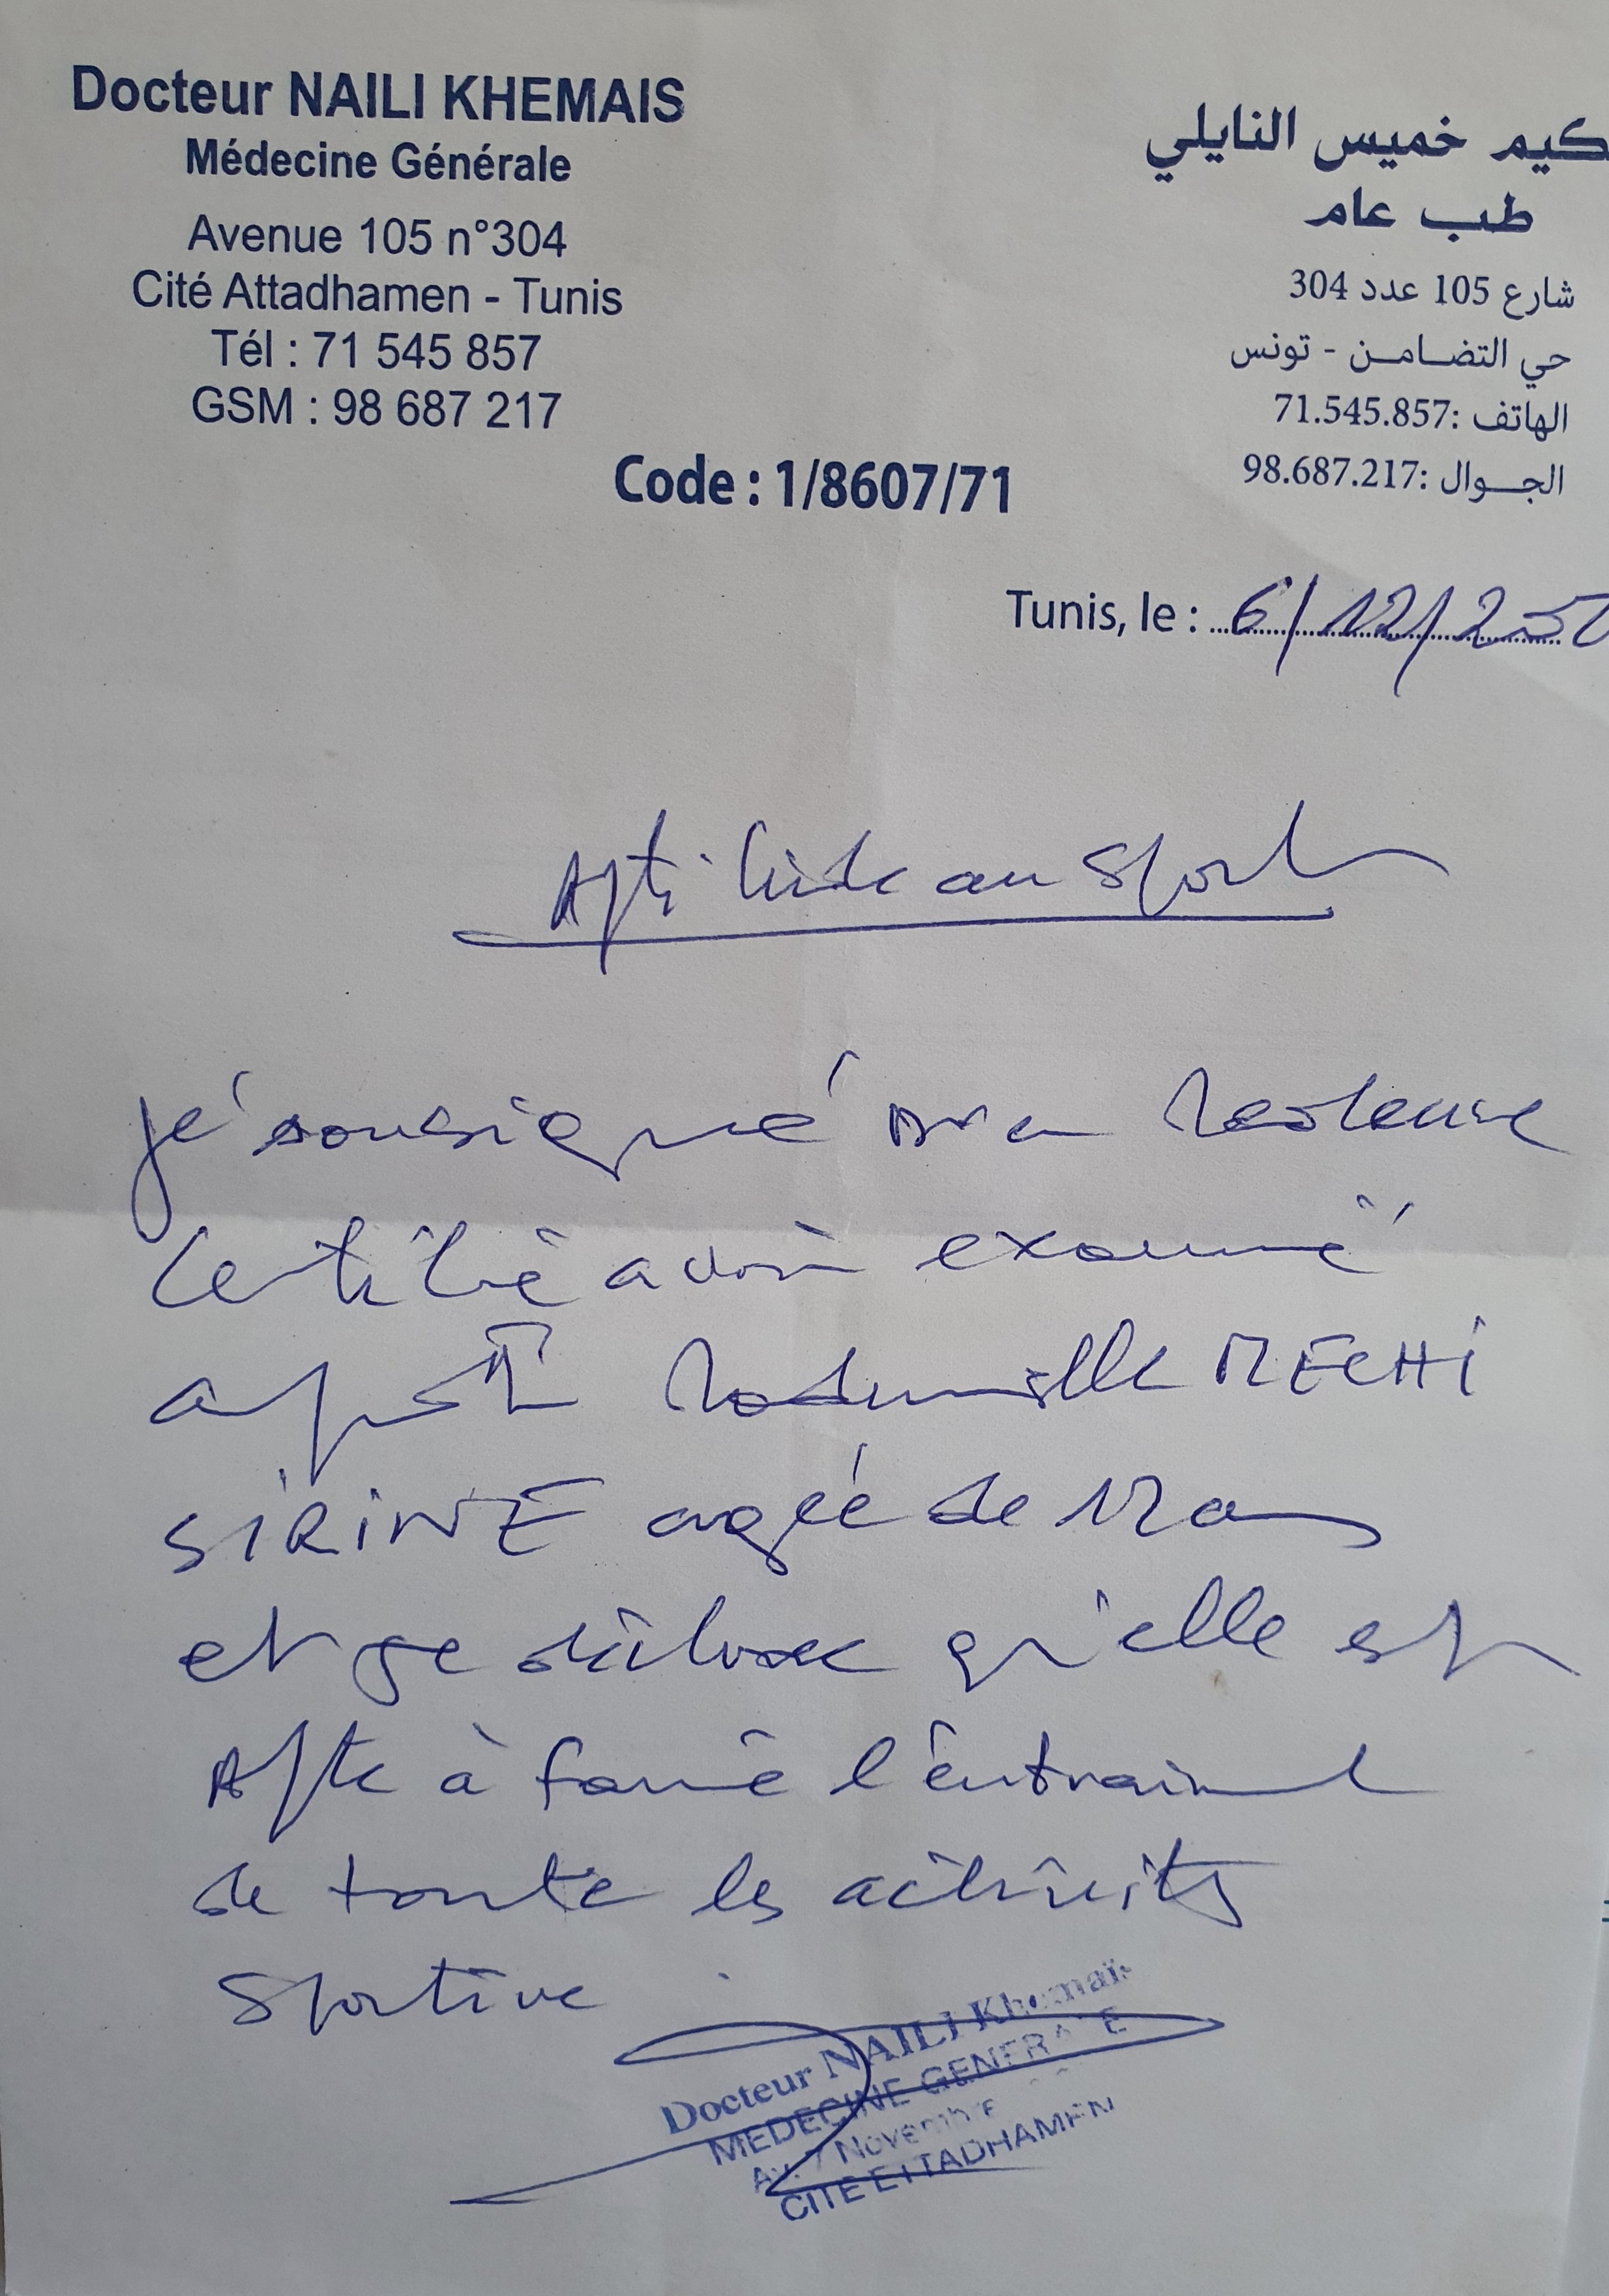 Docteur NAILI KHEMAIS
Médecine Générale
Avenue 105 n°304
Cité Attadhamen - Tunis
Tél : 71 545 857
GSM : 98 687 217
كيم خميس النايلي
طب عام
شارع 105 عدد 304
حي التضامن - تونس
الهاتف :71.545.857
الجوال :98.687.217
Code : 1/8607/71
Tunis, le : 6/12/2
Aptitude au Sport
je soussigné
Certifié avoir examiné
Mademoiselle MECHI
SIRINE agée de 12 ans
et je déclare qu'elle est
Apte à faire l'entrainement
de toute les activités
Sportive
Docteur NAILI Khemais
MEDECINE GENERALE
Av. 7 Novembre
CITE ETTADHAMEN